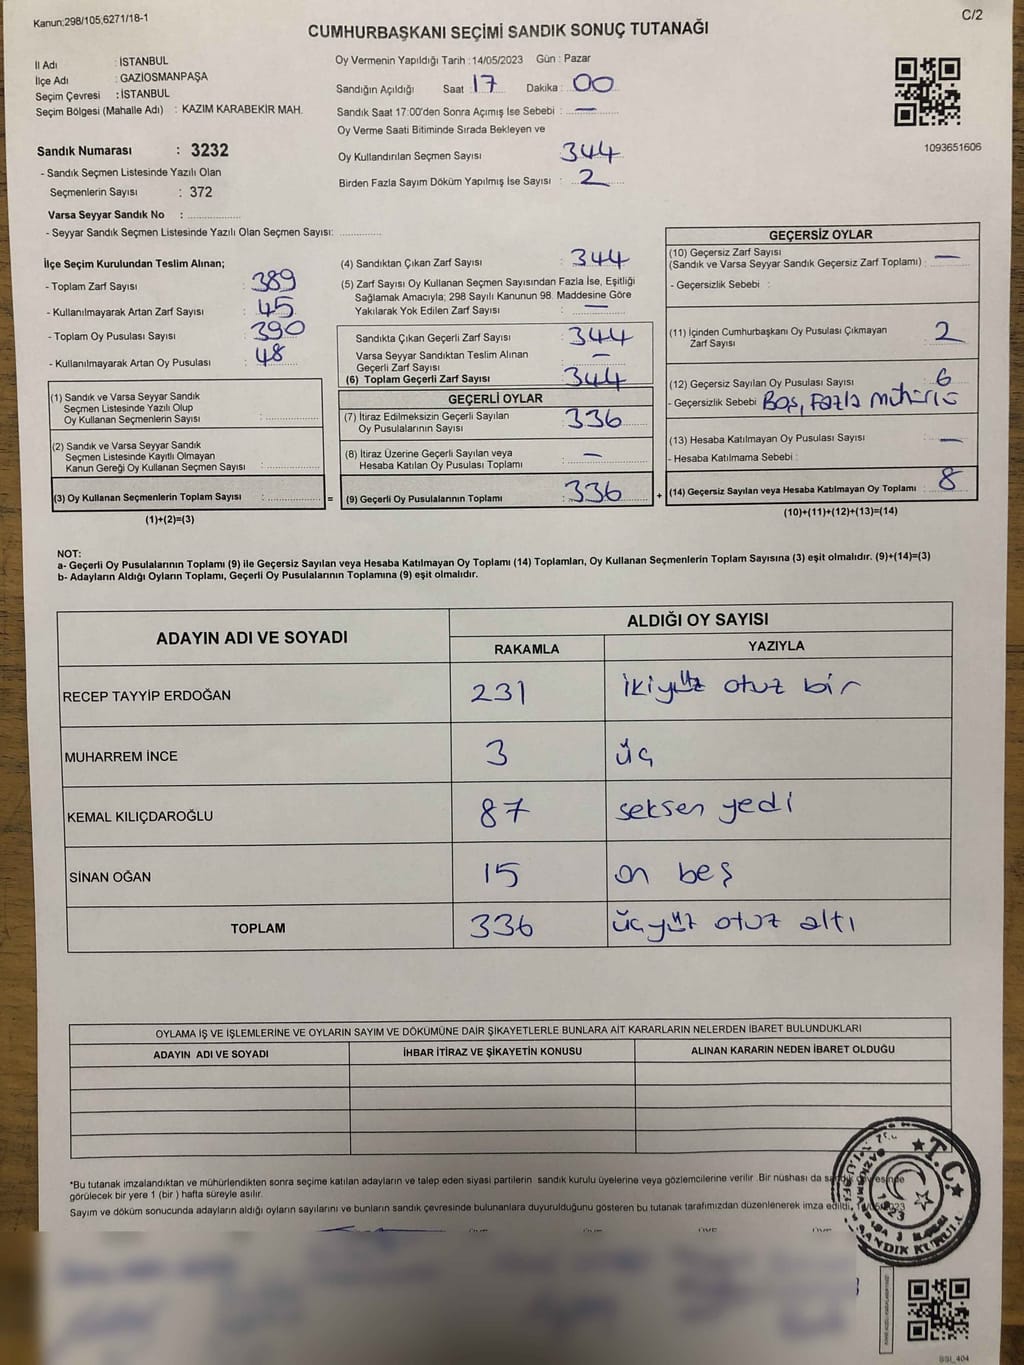 Kanun;298/105,6271/18-1
C/2
CUMHURBAŞKANI SEÇİMİ SANDIK SONUÇ TUTANAĞI
İl Adı : İSTANBUL
İlçe Adı : GAZİOSMANPAŞA
Seçim Çevresi : İSTANBUL
Seçim Bölgesi (Mahalle Adı) : KAZIM KARABEKİR MAH.
Sandık Numarası : 3232
- Sandık Seçmen Listesinde Yazılı Olan
Seçmenlerin Sayısı : 372
Varsa Seyyar Sandık No : ..................
- Seyyar Sandık Seçmen Listesinde Yazılı Olan Seçmen Sayısı: ..............
Oy Vermenin Yapıldığı Tarih : 14/05/2023 Gün : Pazar
Sandığın Açıldığı Saat 17 Dakika : 00
Sandık Saat 17:00'den Sonra Açımış İse Sebebi : —
Oy Verme Saati Bitiminde Sırada Bekleyen ve
Oy Kullandırılan Seçmen Sayısı 344
Birden Fazla Sayım Döküm Yapılmış İse Sayısı : 2
1093651606
İlçe Seçim Kurulundan Teslim Alınan;
- Toplam Zarf Sayısı : 389
- Kullanılmayarak Artan Zarf Sayısı : 45
- Toplam Oy Pusulası Sayısı : 390
- Kullanılmayarak Artan Oy Pusulası : 48
(1) Sandık ve Varsa Seyyar Sandık
Seçmen Listesinde Yazılı Olup
Oy Kullanan Seçmenlerin Sayısı : ..............
(2) Sandık ve Varsa Seyyar Sandık
Seçmen Listesinde Kayıtlı Olmayan
Kanun Gereği Oy Kullanan Seçmen Sayısı : ..............
(3) Oy Kullanan Seçmenlerin Toplam Sayısı : .............. =
(1)+(2)=(3)
(4) Sandıktan Çıkan Zarf Sayısı : 344
(5) Zarf Sayısı Oy Kullanan Seçmen Sayısından Fazla İse, Eşitliği
Sağlamak Amacıyla; 298 Sayılı Kanunun 98. Maddesine Göre
Yakılarak Yok Edilen Zarf Sayısı : —
Sandıkta Çıkan Geçerli Zarf Sayısı : 344
Varsa Seyyar Sandıktan Teslim Alınan
Geçerli Zarf Sayısı : —
(6) Toplam Geçerli Zarf Sayısı : 344
GEÇERLİ OYLAR
(7) İtiraz Edilmeksizin Geçerli Sayılan
Oy Pusulalarının Sayısı : 336
(8) İtiraz Üzerine Geçerli Sayılan veya
Hesaba Katılan Oy Pusulası Toplamı : —
(9) Geçerli Oy Pusulalarının Toplamı : 336 +
GEÇERSİZ OYLAR
(10) Geçersiz Zarf Sayısı
(Sandık ve Varsa Seyyar Sandık Geçersiz Zarf Toplamı) : —
- Geçersizlik Sebebi :
(11) İçinden Cumhurbaşkanı Oy Pusulası Çıkmayan
Zarf Sayısı : 2
(12) Geçersiz Sayılan Oy Pusulası Sayısı : 6
- Geçersizlik Sebebi Boş, Fazla mühürlü
(13) Hesaba Katılmayan Oy Pusulası Sayısı : —
- Hesaba Katılmama Sebebi :
(14) Geçersiz Sayılan veya Hesaba Katılmayan Oy Toplamı : 8
(10)+(11)+(12)+(13)=(14)
NOT:
a- Geçerli Oy Pusulalarının Toplamı (9) ile Geçersiz Sayılan veya Hesaba Katılmayan Oy Toplamı (14) Toplamları, Oy Kullanan Seçmenlerin Toplam Sayısına (3) eşit olmalıdır. (9)+(14)=(3)
b- Adayların Aldığı Oyların Toplamı, Geçerli Oy Pusulalarının Toplamına (9) eşit olmalıdır.
ADAYIN ADI VE SOYADI
ALDIĞI OY SAYISI
RAKAMLA YAZIYLA
RECEP TAYYİP ERDOĞAN 231 ikiyüz otuz bir
MUHARREM İNCE 3 üç
KEMAL KILIÇDAROĞLU 87 seksen yedi
SİNAN OĞAN 15 on beş
TOPLAM 336 üçyüz otuz altı
OYLAMA İŞ VE İŞLEMLERİNE VE OYLARIN SAYIM VE DÖKÜMÜNE DAİR ŞİKAYETLERLE BUNLARA AİT KARARLARIN NELERDEN İBARET BULUNDUKLARI
ADAYIN ADI VE SOYADI İHBAR İTİRAZ VE ŞİKAYETİN KONUSU ALINAN KARARIN NEDEN İBARET OLDUĞU
*Bu tutanak imzalandıktan ve mühürlendikten sonra seçime katılan adayların ve talep eden siyasi partilerin sandık kurulu üyelerine veya gözlemcilerine verilir. Bir nüshası da sandık çevresinde
görülecek bir yere 1 (bir ) hafta süreyle asılır.
Sayım ve döküm sonucunda adayların aldığı oyların sayılarını ve bunların sandık çevresinde bulunanlara duyurulduğunu gösteren bu tutanak tarafımızdan düzenlenerek imza edildi.
T.C.
1923
SANDIK KURULU